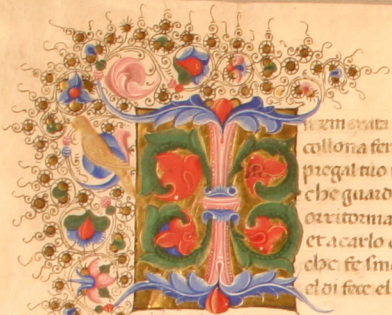 I
collona fer
pregal tuo
che guard
orritorma
et a carlo
che fe sm
el di fece el